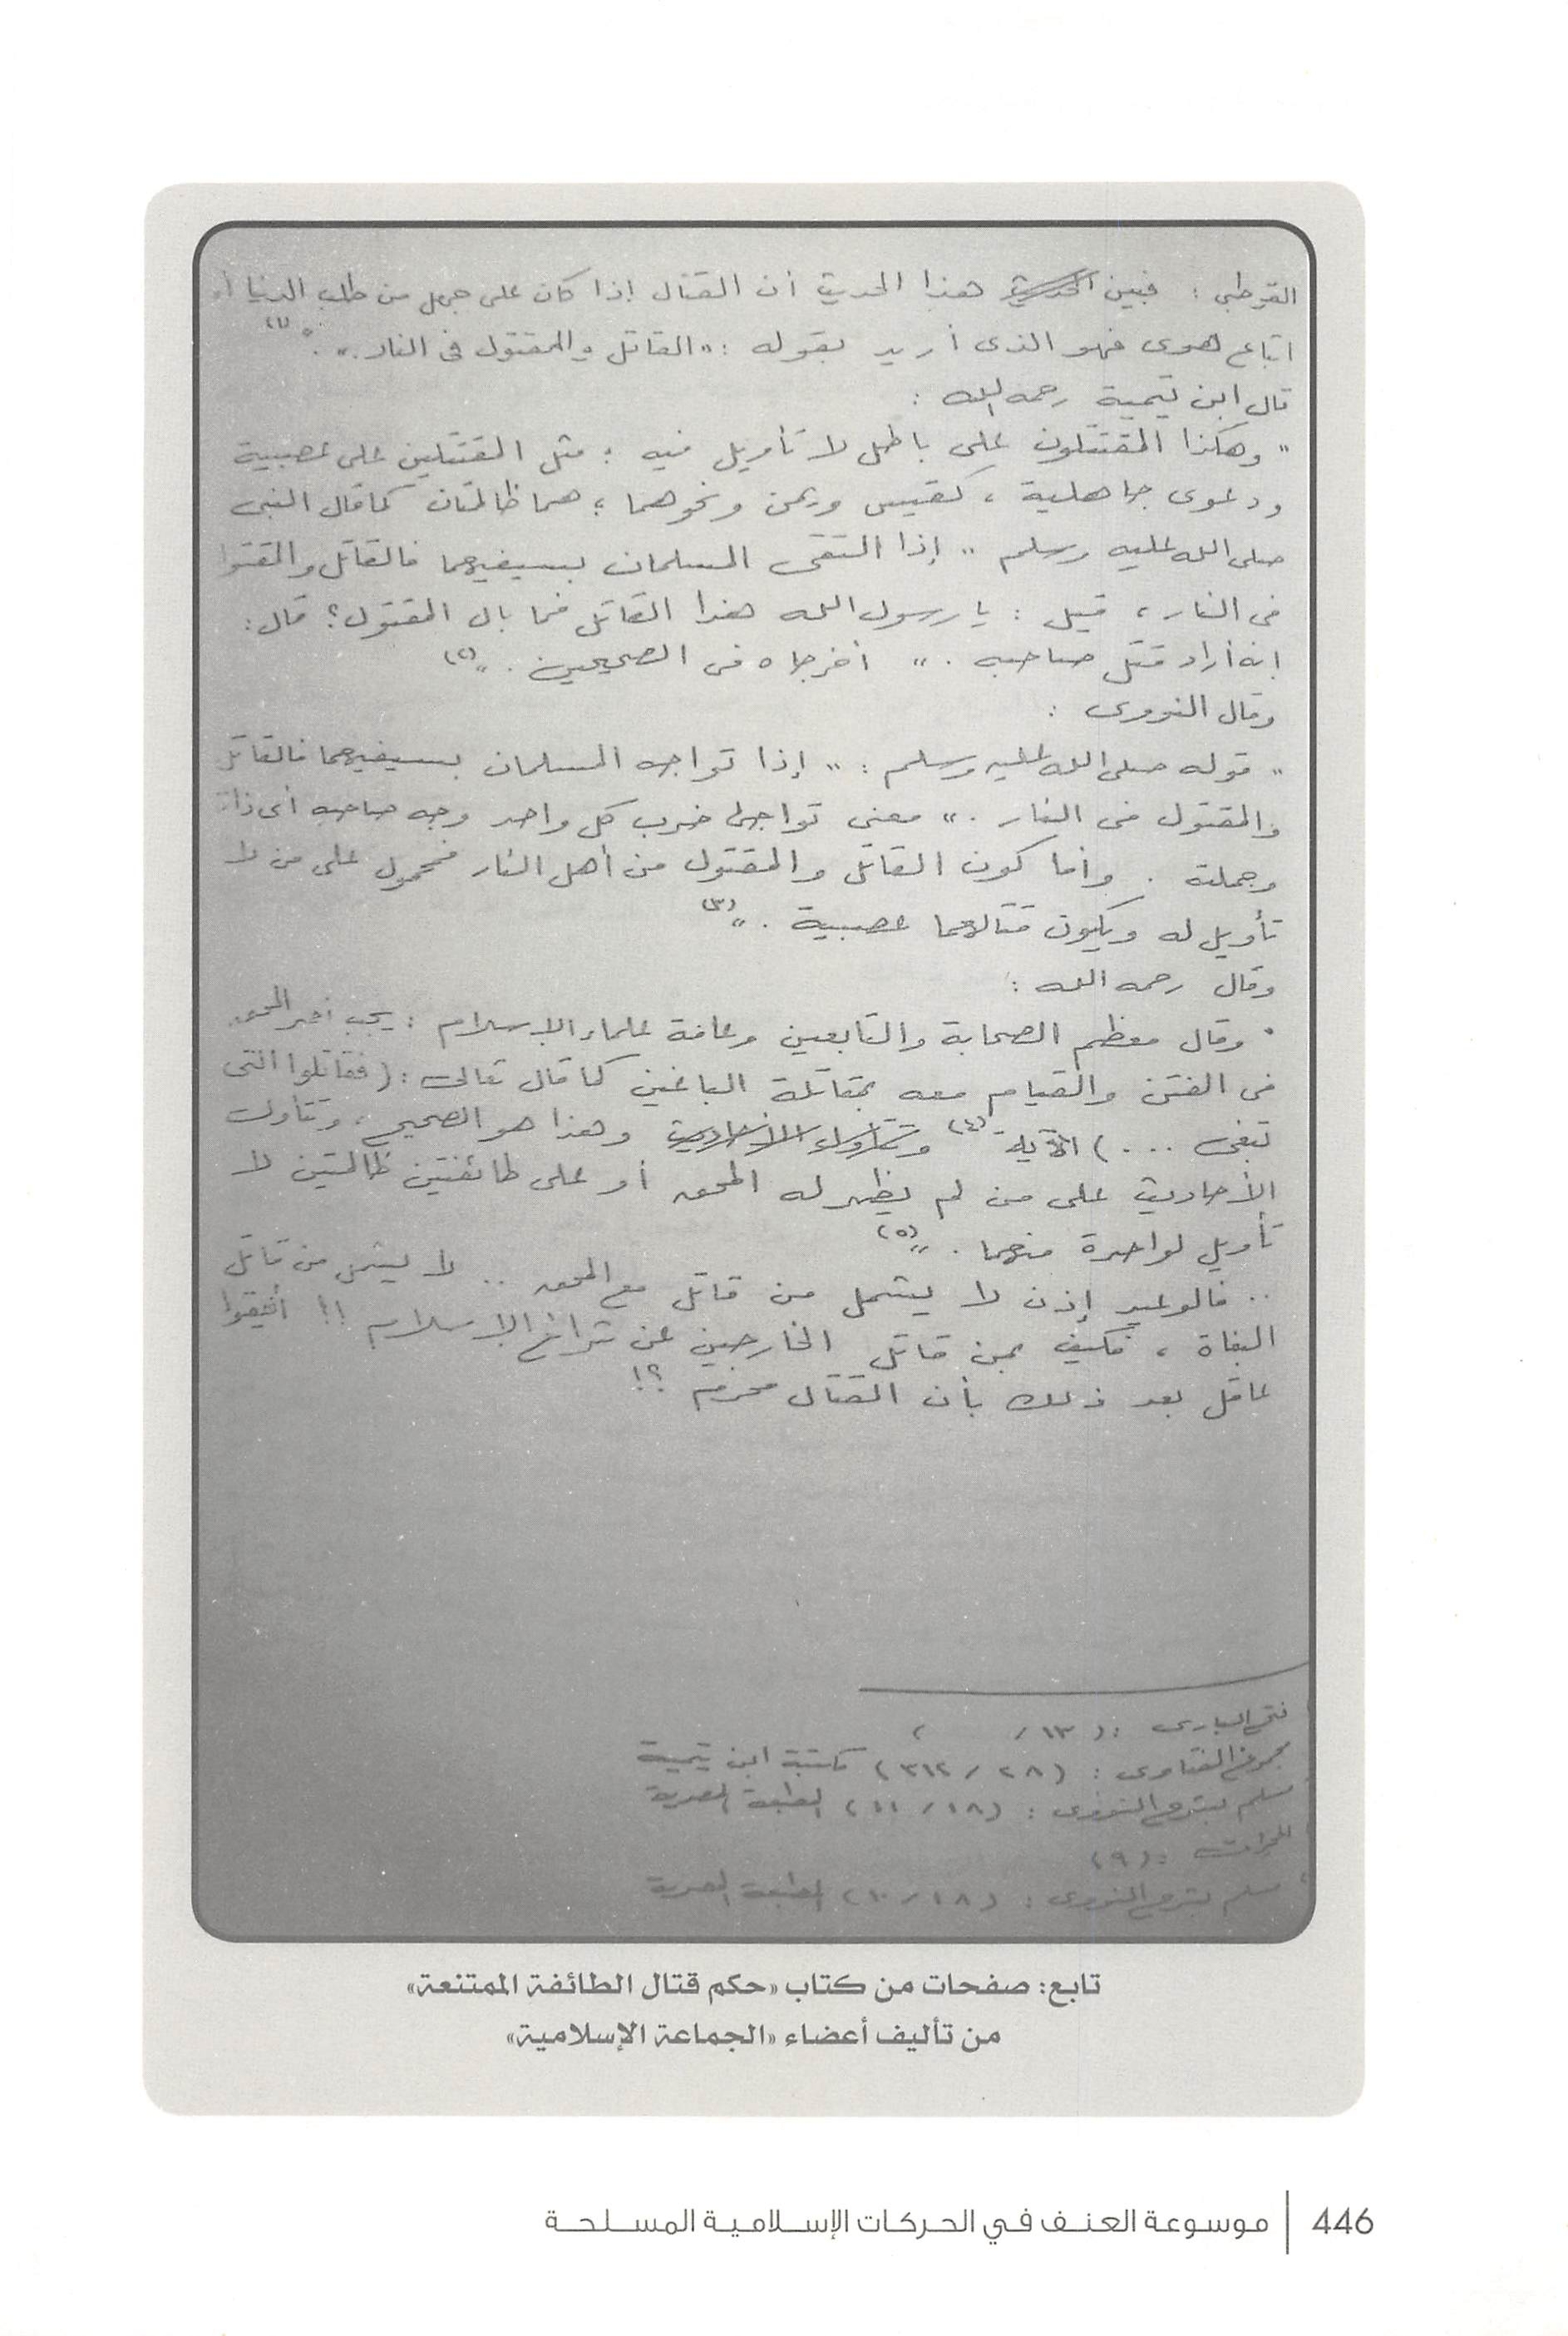 القرطبي : فبين الحديث هذا الحديث أن القتال إذا كان على جهل من طلب الدنيا أو
اتباع لهوى فهو الذى أريد بقوله : " القاتل والمقتول فى النار . " . (١)
قال ابن تيمية رحمه الله :
" وهكذا المقتتلون على باطل لا تأويل فيه ؛ مثل المقتتلين على عصبية
ودعوى جاهلية ، كقيس ويمن ونحوهما ؛ هما ظالمتان كما قال النبى
صلى الله عليه وسلم " إذا التقى المسلمان بسيفيهما فالقاتل والمقتول
فى النار ، قيل : يا رسول الله هذا القاتل فما بال المقتول ؟ قال :
إنه أراد قتل صاحبه . " أخرجاه فى الصحيحين . " (٢)
وقال النووى :
" قوله صلى الله عليه وسلم : " إذا تواجه المسلمان بسيفيهما فالقاتل
والمقتول فى النار . " معنى تواجها ضرب كل واحد وجه صاحبه أى ذاته
وجملته . وأما كون القاتل والمقتول من أهل النار فمحمول على من لا
تأويل له ويكون قتالهما عصبية . " (٣)
وقال رحمه الله :
" وقال معظم الصحابة والتابعين وعامة علماء الإسلام : يجب نصر المحق
فى الفتن والقيام معه بمقاتلة الباغين كما قال تعالى : ( فقاتلوا التى
تبغى ... ) الآية (٤) وتتأول الأحاديث وهذا هو الصحيح ، وتتأول
الأحاديث على من لم يظهر له المحق أو على طائفتين ظالمتين لا
تأويل لواحدة منهما . " (٥)
.. فالوعيد إذن لا يشمل من قاتل مع المحق .. لا يشمل من قاتل
البغاة ، فكيف بمن قاتل الخارجين عن شرائع الإسلام !!
عاقل بعد ذلك بأن القتال محرم ؟!
فتح البارى : ( ١٣ / )
مجموع الفتاوى : ( ٢٨ / ٣١٢ ) مكتبة ابن تيمية
مسلم بشرح النووى : ( ١٨ / ١١ ) المطبعة المصرية
الحجرات : ( ٩ )
مسلم بشرح النووى : ( ١٨ / ١٠ ) المطبعة المصرية
تابع: صفحات من كتاب «حكم قتال الطائفة الممتنعة»
من تأليف أعضاء «الجماعة الإسلامية»
446 | موسوعة العنف في الحركات الإسلامية المسلحة